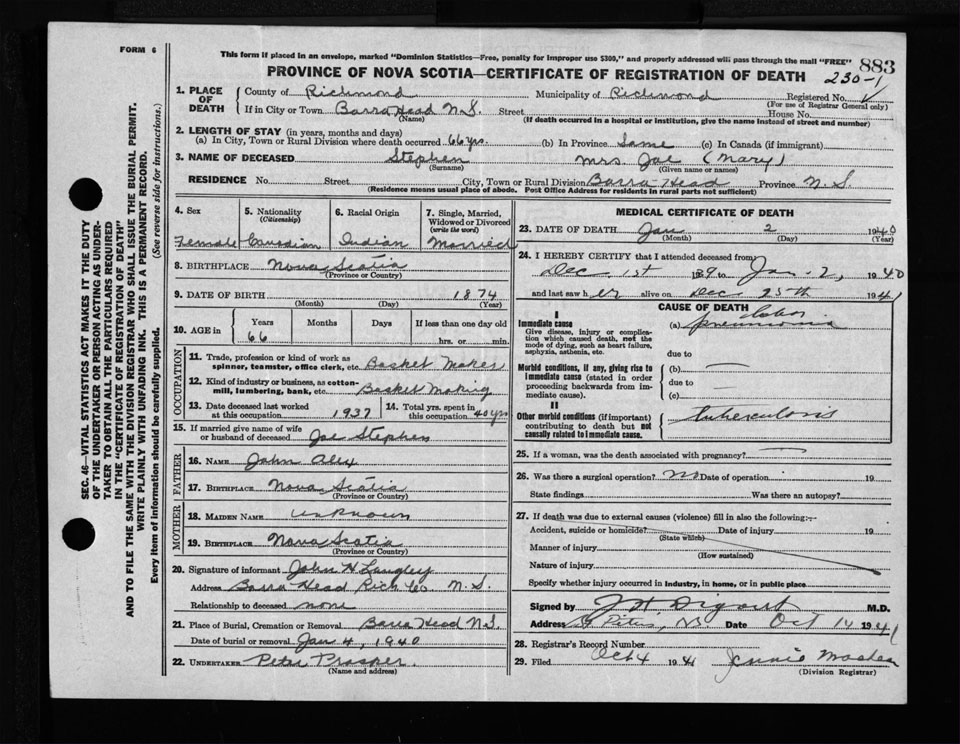 FORM 6
This form if placed in an envelope, marked "Dominion Statistics—Free, penalty for improper use $300," and properly addressed will pass through the mail "FREE"
883
PROVINCE OF NOVA SCOTIA—CERTIFICATE OF REGISTRATION OF DEATH
230-1
1. PLACE OF DEATH
County of Richmond Municipality of Richmond Registered No.
(For use of Registrar General only)
If in City or Town Barra Head N.S. Street House No.
(Name) (If death occurred in a hospital or institution, give the name instead of street and number)
2. LENGTH OF STAY (in years, months and days)
(a) In City, Town or Rural Division where death occurred 66 yrs. (b) In Province Same (c) In Canada (if immigrant)
3. NAME OF DECEASED Stephen Mrs. Joe (Mary)
(Surname) (Given name or names)
RESIDENCE No. Street City, Town or Rural Division Barra Head Province N.S.
(Residence means usual place of abode. Post Office Address for residents in rural parts not sufficient)
4. Sex Female
5. Nationality (Citizenship) Canadian
6. Racial Origin Indian
7. Single, Married, Widowed or Divorced (write the word) Married
8. BIRTHPLACE Nova Scotia
(Province or Country)
9. DATE OF BIRTH 1874
(Month) (Day) (Year)
10. AGE in Years Months Days If less than one day old
66 hrs. or min.
OCCUPATION
11. Trade, profession or kind of work as spinner, teamster, office clerk, etc. Basket Maker
12. Kind of industry or business, as cotton-mill, lumbering, bank, etc. Basket Making
13. Date deceased last worked at this occupation 1937
14. Total yrs. spent in this occupation 40 yrs
15. If married give name of wife or husband of deceased Joe Stephen
FATHER
16. NAME John Alex
17. BIRTHPLACE Nova Scotia
(Province or Country)
MOTHER
18. MAIDEN NAME unknown
19. BIRTHPLACE Nova Scotia
(Province or Country)
20. Signature of informant John H Langley
Address Barra Head Rich Co N.S.
Relationship to deceased none
21. Place of Burial, Cremation or Removal Barra Head N.S.
Date of burial or removal Jan 4, 1940
22. UNDERTAKER Peter Prosper.
(Name and address)
MEDICAL CERTIFICATE OF DEATH
23. DATE OF DEATH Jan 2 1940
(Month) (Day) (Year)
24. I HEREBY CERTIFY that I attended deceased from
Dec 1st 1939 to Jan-2, 1940
and last saw her alive on Dec 25th 1941
CAUSE OF DEATH
I
Immediate cause
Give disease, injury or complication which caused death, not the mode of dying, such as heart failure, asphyxia, asthenia, etc.
(a) lobar pneumonia
due to
Morbid conditions, if any, giving rise to immediate cause (stated in order proceeding backwards from immediate cause).
(b)
due to
(c)
II
Other morbid conditions (if important) contributing to death but not causally related to immediate cause.
tuberculosis
25. If a woman, was the death associated with pregnancy?
26. Was there a surgical operation? no Date of operation 19
State findings Was there an autopsy?
27. If death was due to external causes (violence) fill in also the following:—
Accident, suicide or homicide? Date of injury 19
(State which)
Manner of injury
(How sustained)
Nature of injury
Specify whether injury occurred in industry, in home, or in public place
Signed by J H Digout M.D.
Address St Peters, N.S. Date Oct 14 1941
28. Registrar's Record Number
29. Filed Oct 4 1941 Jennie
(Division Registrar)
SEC. 46—VITAL STATISTICS ACT MAKES IT THE DUTY
OF THE UNDERTAKER OR PERSON ACTING AS UNDER-
TAKER TO OBTAIN ALL THE PARTICULARS REQUIRED
IN THE "CERTIFICATE OF REGISTRATION OF DEATH"
AND TO FILE THE SAME WITH THE DIVISION REGISTRAR WHO SHALL ISSUE THE BURIAL PERMIT.
WRITE PLAINLY WITH UNFADING INK. THIS IS A PERMANENT RECORD.
Every item of information should be carefully supplied. (See reverse side for instructions.)